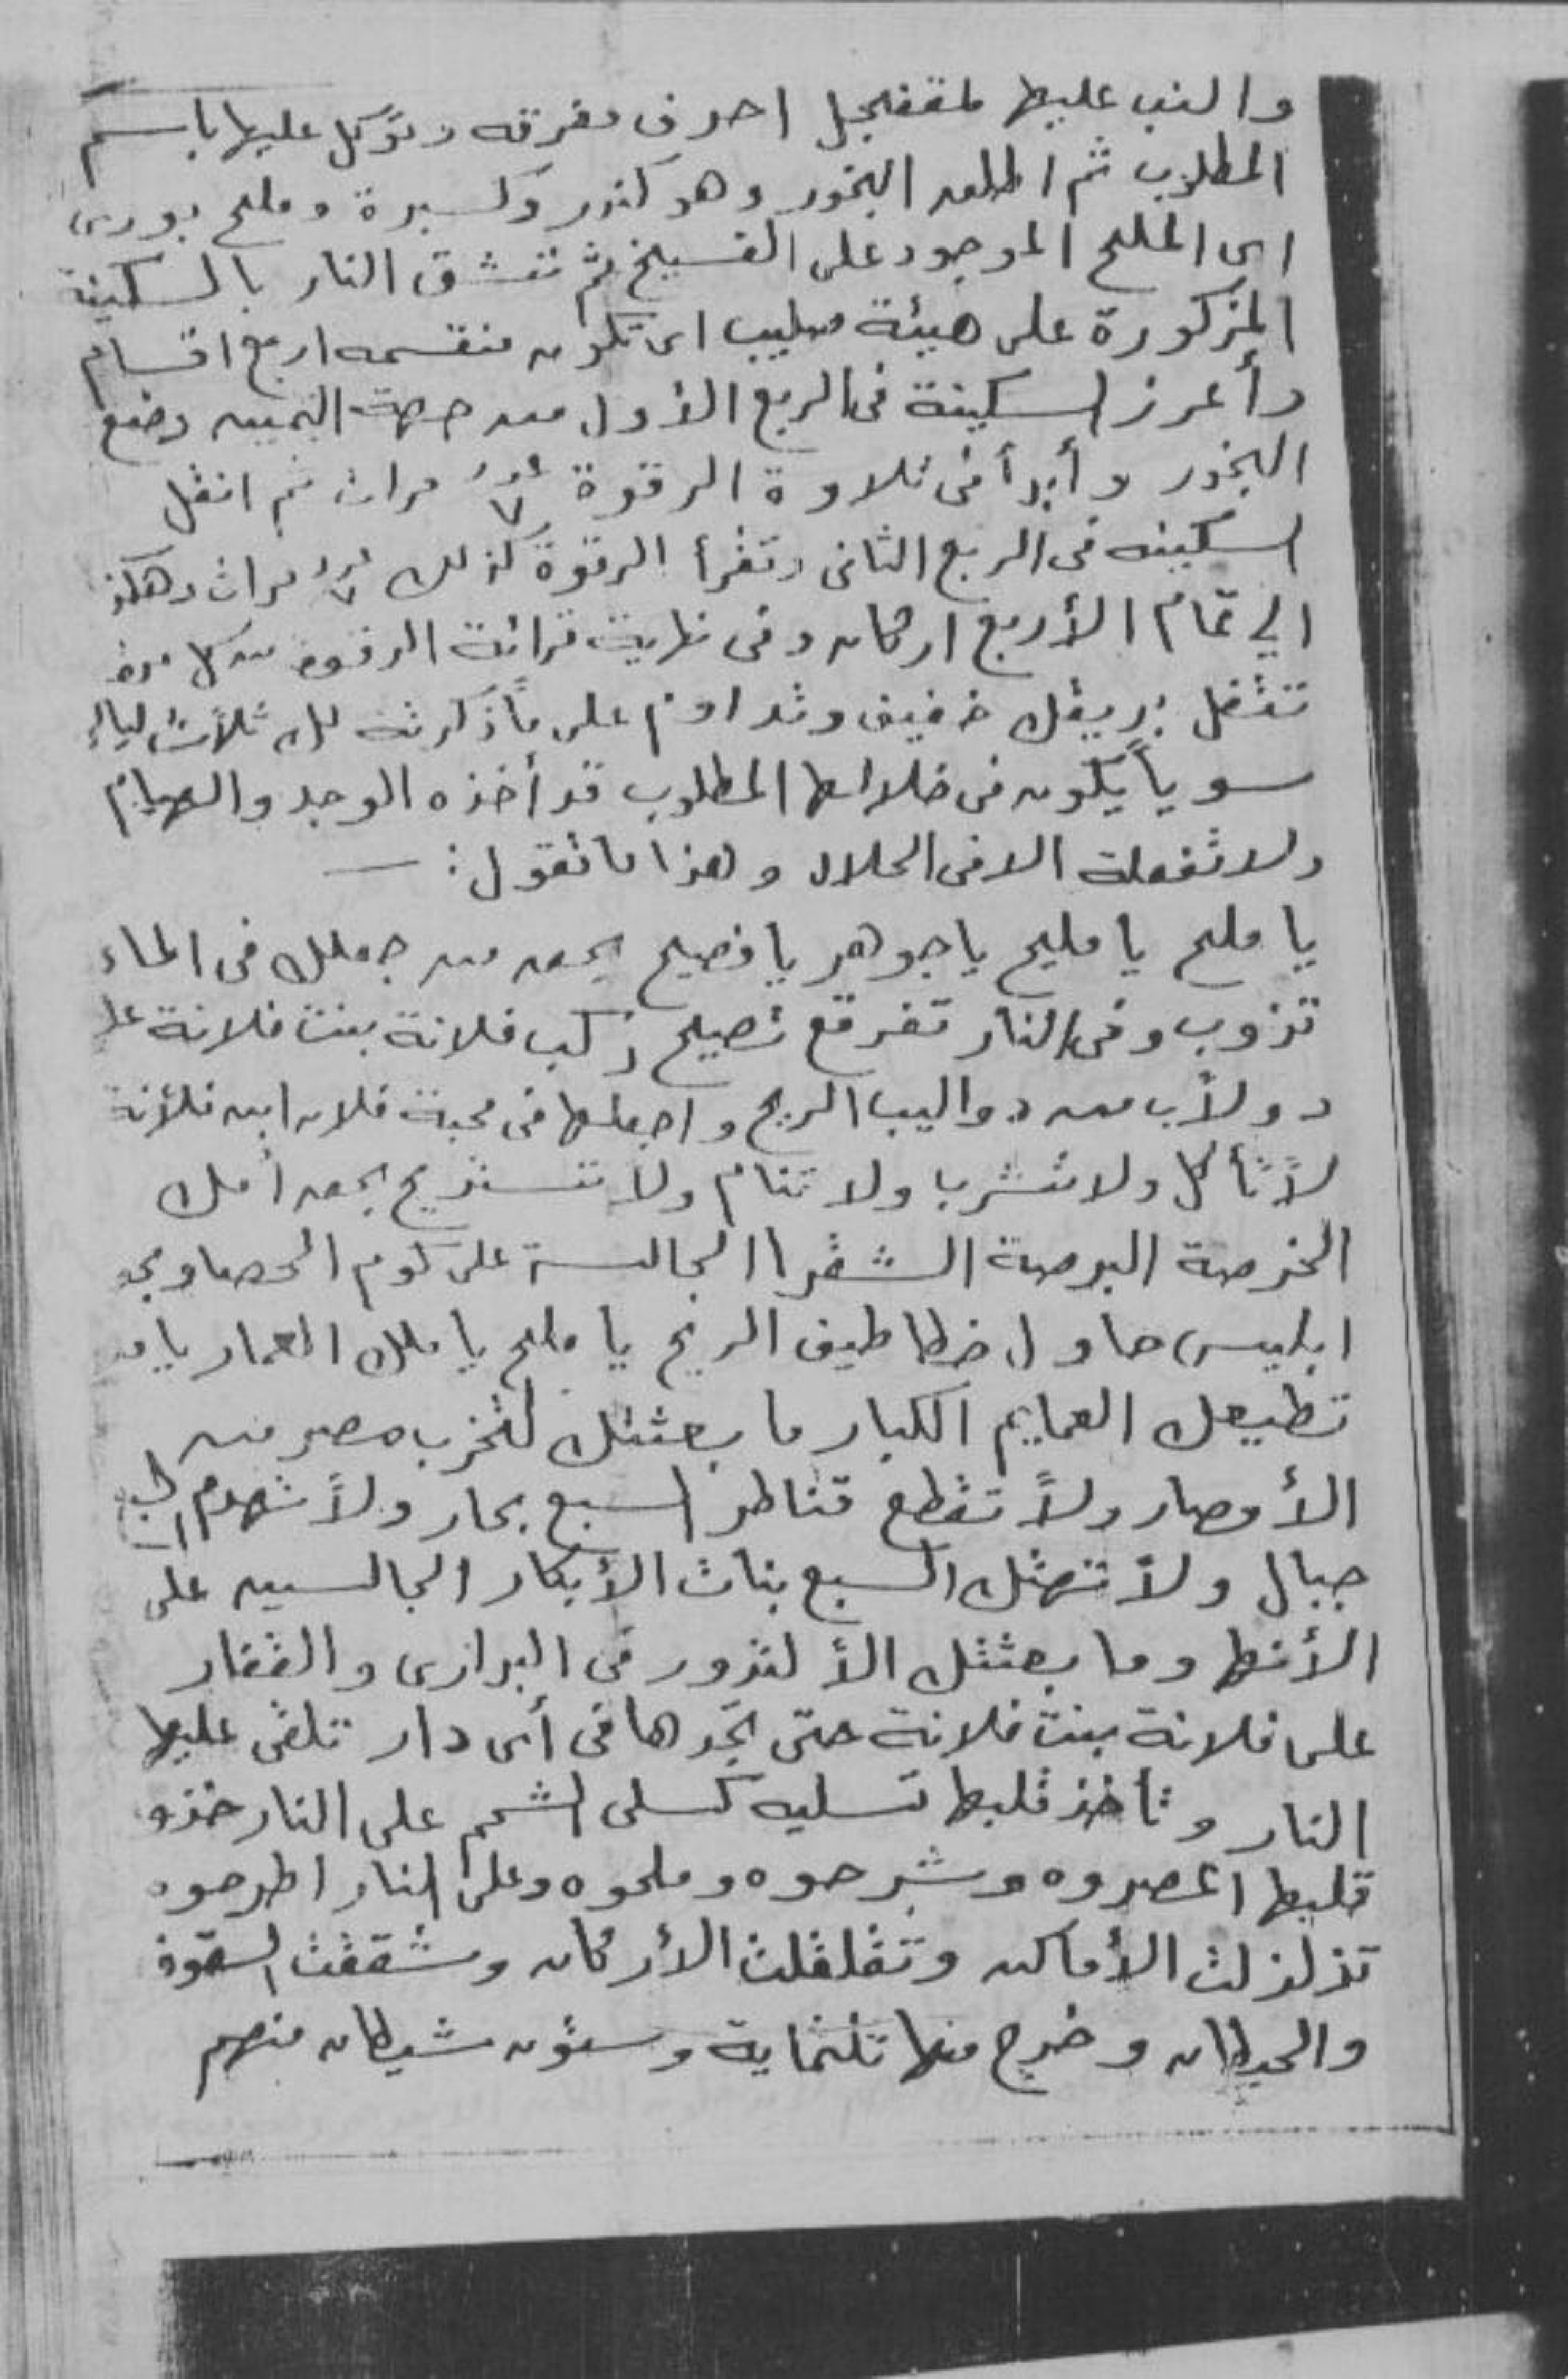 واكتب عليها احرف مفرقه وتوكل عليها باسم
المطلوب ثم اطلعه البخور وهو كندر وكسبرة وملح بورى
اى الملح الموجود على الفسيخ ثم تشق النار بالسكينة
المزكورة على هيئة صليب اى تكون منقسمه اربع اقسام
وأغرز السكينة فى الربع الأول من جهة اليمين وضع
البخور وأبدأ فى تلاوة الرقوة عدد ٧ مرات ثم انقل
السكينه فى الربع الثانى وتقرأ الرقوة كذلك عدد ٧ مرات وهكذ
الي تمام الأربع اركان وفى نهاية قرائة الرقوه من كل مره
تتفل بريقك خفيف وتداوم على ما ذكرته لك ثلاث ليال
سوياً يكون فى خلالها المطلوب قد أخذه الوجد والهيام
ولا تفعلة الا فى الحلال وهذا ما تقول :ـ
يا ملح يا مليح يا جوهر يا فصيح بحق من جعلك فى الماء
تزوب وفى النار تفرقع تصيح ركب فلانة بنت فلانة على
دولاب من دواليب الريح واجعلها فى محبة فلان ابن فلانة
لا تأكل ولا تشرب ولا تنام ولا تستريح بحق أمك
الخرصة البرصة الشقرا الجالسة على كوم الحصا
ابليس حاول خطاطيف الريح يا ملح يا ملك العمار يا من
تطيعك العمايم الكبار ما بعثتك لتخرب مصر من
الأمصار ولا تقطع قناطر السبع بحار ولا تهدم
جبال ولا تهتك السبع بنات الأبكار الجالسين على
وما بعثتك الا لتدور فى البرارى والقفار
على فلانة بنت فلانة حتى تجدها فى أى دار تلقى عليها
النار وتاخذ قلبها تسليه كسلى الشحم على النار خذو
قلبها اعصروه وشرحوه وملحوه وعلى النار اطرحوه
تزلزلت الأماكن وتقلقلت الأركان وشققت
والحيطان وخرج منها تلتماية وستون شيطان منهم